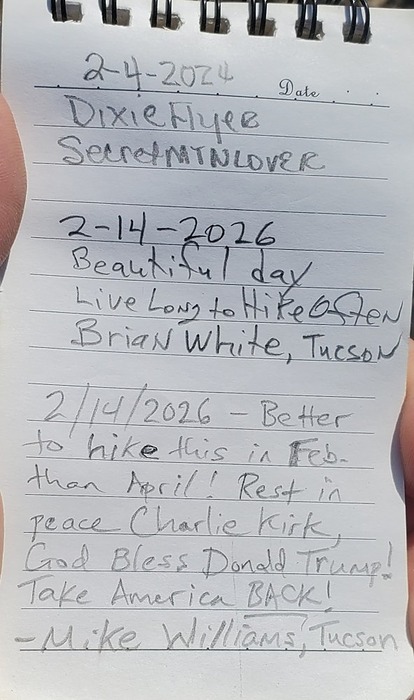 2-4-2024
Date
Dixie Flyer
SecretMTNLOVER
2-14-2026
Beautiful day
Live Long to Hike Often
Brian White, Tucson
2/14/2026 - Better
to hike this in Feb.
than April! Rest in
peace Charlie Kirk,
God Bless Donald Trump!
Take America BACK!
-Mike Williams, Tucson